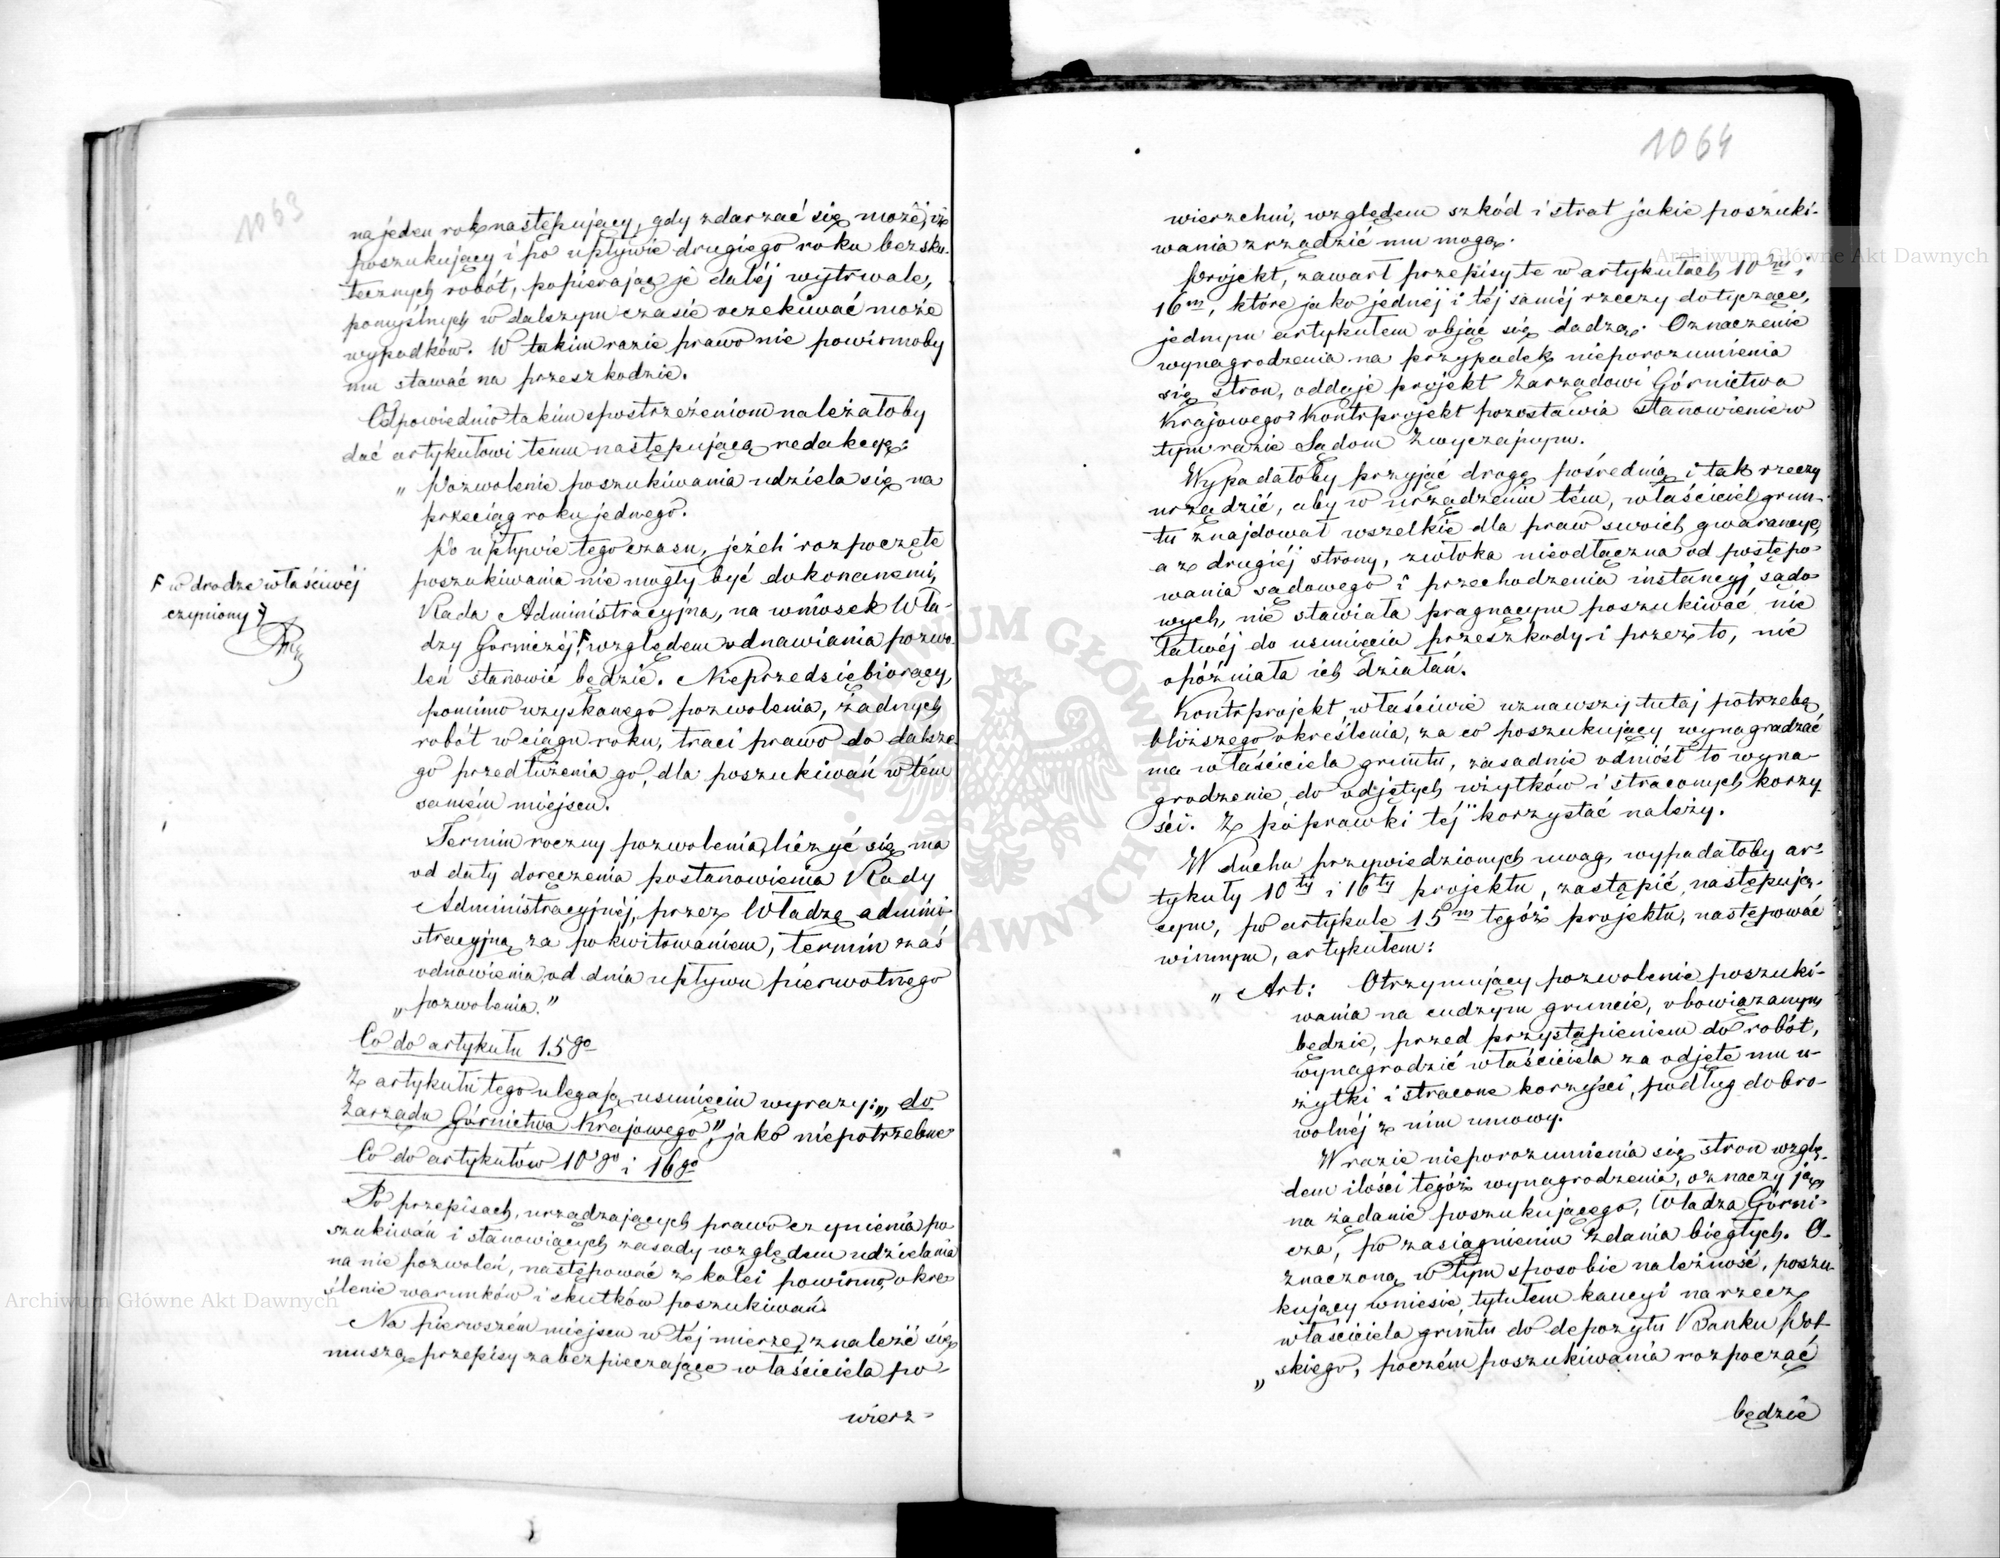 1063
na jeden rok następujący, gdy zdarzać się może, iż
poszukujący i po upływie drugiego roku bezsku-
tecznych robót, popierając je daléj wytrwale,
pomyślnych w dalszym czasie oczekiwać może
wypadków. W takim razie prawo nie powinnoby
mu stawać na przeszkodzie.
Odpowiednio takim spostrzeżeniom należałoby
dać artykułowi temu następującą redakcyę:
„ Pozwolenie poszukiwania udziela się na
przeciąg roku jednego.
Po upływie tego czasu, jeżeli rozpoczęte
poszukiwania nie mogły być dokonanemi,
Rada Administracyjna, na wniosek Wła-
dzy Górniczéj F względem odnawiania pozwo-
leń stanowić będzie. Nieprzedsiębiorący,
pomimo uzyskanego pozwolenia, żadnych
robót w ciągu roku, traci prawo do dalsze-
go przedłużenia go, dla poszukiwań w tém
samém miejscu.
F w drodze właściwéj
czyniony F
Termin roczny pozwolenia, liczyć się ma
od daty doręczenia postanowienia Rady
Administracyjnéj, przez Władzę admini-
stracyjną za pokwitowaniem, termin zaś
odnowienia, od dnia upływu pierwotnego
„ pozwolenia.”
Co do artykułu 15go
Z artykułu tego ulegają usunięciu wyrazy: „do
Zarządu Górnictwa Krajowego”, jako niepotrzebne
Co do artykułów 10go i 16go
Po przepisach, urządzających prawo czynienia po-
szukiwań i stanowiących zasady względem udzielania
na nie pozwoleń, następować z kolei powinno, okre-
ślenie warunków i skutków poszukiwań.
Na pierwszém miejscu w téj mierze, znaleźć się
muszą przepisy zabezpieczające właściciela po-
wierz-
1064
wierzchni, względem szkód i strat jakie poszuki-
wania zrządzić mu mogą.
Projekt, zawarł przepisy te w artykułach 10m i
16m, które jako jednéj i téj saméj rzeczy dotyczące,
jednym artykułem objąć się dadzą. Oznaczenie
wynagrodzenia na przypadek nieporozumienia
się stron, oddaje projekt Zarządowi Górnictwa
Krajowego; Kontrprojekt pozostawia stanowienie w
tym razie Sądom Zwyczajnym.
Wypadałoby przyjąć drogę pośrednią i tak rzeczy
urządzić, aby w urządzeniu tém, właściciel grun-
tu znajdował wszelkie dla praw swoich gwarancye,
a z drugiéj strony, zwłoka nieodłączna od postępo-
wania sądowego i przechodzenia instancyj sądo-
wych, nie stawiała pragnącym poszukiwać nie
łatwéj do usunięcia przeszkody i przez to, nie
opóźniała ich działań.
Kontrprojekt, właściwie uznawszy tutaj potrzebę
bliższego określenia, za co poszukujący wynagradzać
ma właściciela gruntu, zasadnie odniósł to wyna-
grodzenie, do odjętych użytków i straconych korzy-
ści. Z poprawki téj korzystać należy.
W duchu przywiedzionych uwag, wypadałoby ar-
tykuły 10ty i 16ty projektu, zastąpić następują-
cym, po artykule 15m tegóż projektu, następować
winnym, artykułem:
„ Art: Otrzymujący pozwolenie poszuki-
wania na cudzym gruncie, obowiązanym
będzie, przed przystąpieniem do robót,
wynagrodzić właściciela za odjęte mu u-
żytki i stracone korzyści, podług dobro-
wolnéj z nim umowy.
W razie nieporozumienia się stron wzglę-
dem ilości tegóż wynagrodzenia, oznaczy ją,
na żądanie poszukującego, Władza Górni-
cza, po zasiągnieniu zdania biegłych. O-
znaczoną w tym sposobie należność, poszu-
kujący wniesie, tytułem kaucyi na rzecz
właściciela gruntu do depozytu Banku Pol-
„ skiego, poczém poszukiwania rozpocząć
będzie
Archiwum Główne Akt Dawnych
Archiwum Główne Akt Dawnych
ARCHIWUM GŁÓWNE AKT DAWNYCH